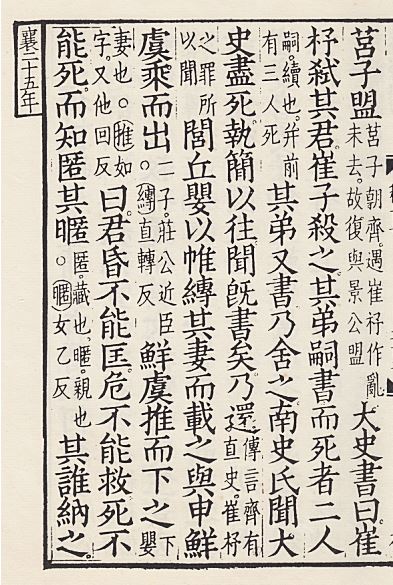 莒子盟莒子朝齊。遇崔杼作亂未去。故復與景公盟大史書曰。崔
杼弑其君。崔子殺之。其弟嗣書而死者二人
嗣。續也。并前有三人死其弟又書。乃舍之。南史氏聞大
史盡死。執簡以往。聞既書矣。乃還。傳言齊有直史。崔杼
之罪所以聞閭丘嬰以帷縛其妻而載之。與申鮮
虞乘而出。二子。莊公近臣○縛直轉反鮮虞推而下之。下嬰
妻也。○推如字。又他回反曰。君昏不能匡。危不能救。死不
能死。而知匿其暱。匿。藏也。暱。親也○暱女乙反其誰納之。
襄二十五年